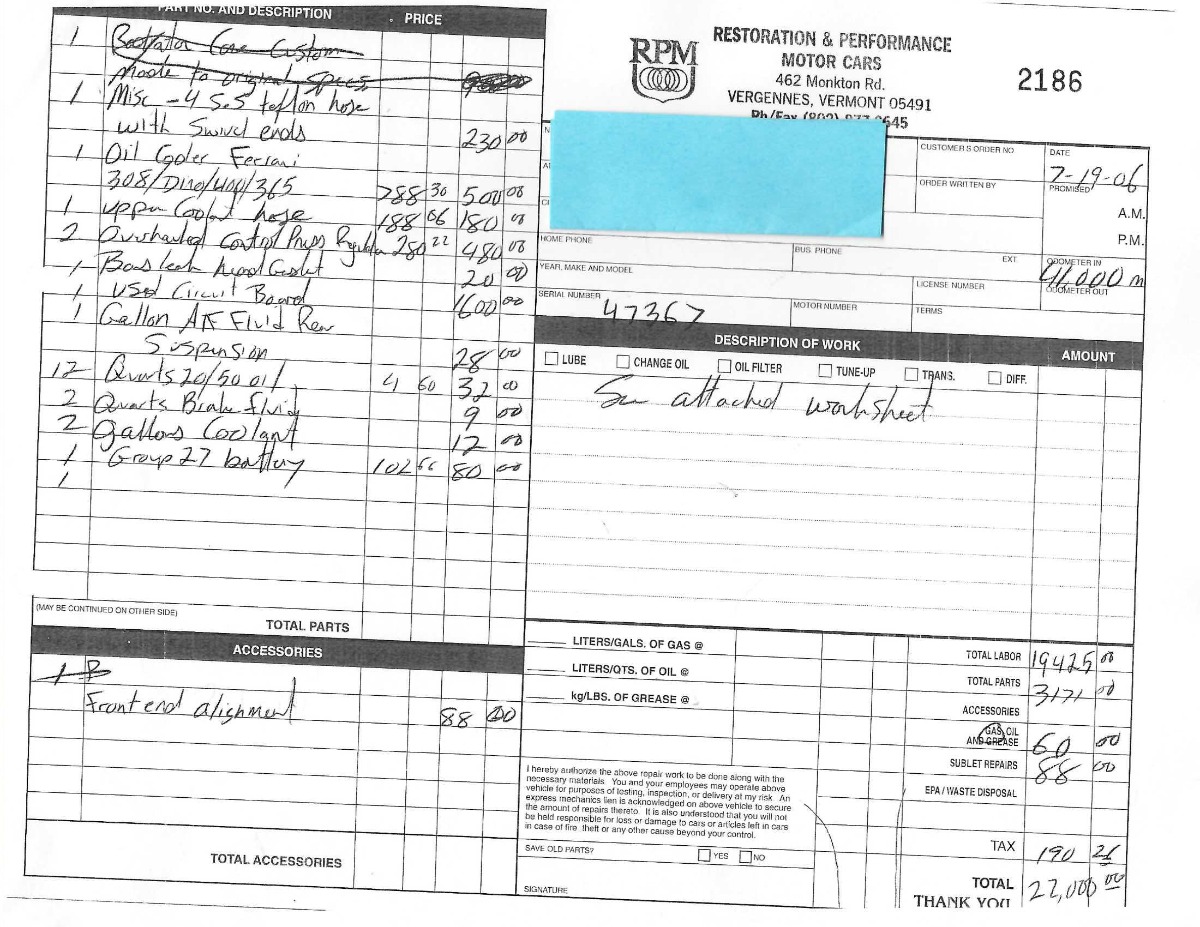 PART NO. AND DESCRIPTION PRICE
1 Custom
Made to original specs
1 Misc -4 S.S teflon hose
with Swivel ends 230 00
1 Oil Cooler Ferrari
308/Dino/400/365 788 30 500 00
1 upper Coolant hose 188 06 180 00
2 Overhauled Control Press Regulator 280 22 480 00
1 head Gasket 20 00
1 used Circuit Board 1600 00
1 Gallon ATF Fluid Rear
Suspension 28 00
12 Quarts 20/50 oil 4 60 32 00
2 Quarts Brake fluid 9 00
2 gallons Coolant 12 00
1 Group 27 battery 102 66 80 00
1
(MAY BE CONTINUED ON OTHER SIDE)
TOTAL PARTS
ACCESSORIES
1 B
Front end alignment 88 00
TOTAL ACCESSORIES
RPM
RESTORATION & PERFORMANCE
MOTOR CARS
462 Monkton Rd.
VERGENNES, VERMONT 05491
Ph/Fax (802)
2186
CUSTOMER'S ORDER NO
DATE
7-19-06
ORDER WRITTEN BY
PROMISED
A.M.
P.M.
HOME PHONE
BUS. PHONE
EXT.
ODOMETER IN
41,000 m
YEAR, MAKE AND MODEL
LICENSE NUMBER
ODOMETER OUT
SERIAL NUMBER
47367
MOTOR NUMBER
TERMS
DESCRIPTION OF WORK AMOUNT
LUBE CHANGE OIL OIL FILTER TUNE-UP TRANS. DIFF.
See attached worksheet
LITERS/GALS. OF GAS @
LITERS/QTS. OF OIL @
kg/LBS. OF GREASE @
TOTAL LABOR 19425 00
TOTAL PARTS 3171 00
ACCESSORIES
GAS, OIL
AND GREASE 60 00
SUBLET REPAIRS 88 00
EPA / WASTE DISPOSAL
TAX 190 26
TOTAL 22,000 00
THANK YOU
I hereby authorize the above repair work to be done along with the
necessary materials. You and your employees may operate above
vehicle for purposes of testing, inspection, or delivery at my risk. An
express mechanics lien is acknowledged on above vehicle to secure
the amount of repairs thereto. It is also understood that you will not
be held responsible for loss or damage to cars or articles left in cars
in case of fire, theft or any other cause beyond your control.
SAVE OLD PARTS? YES NO
SIGNATURE